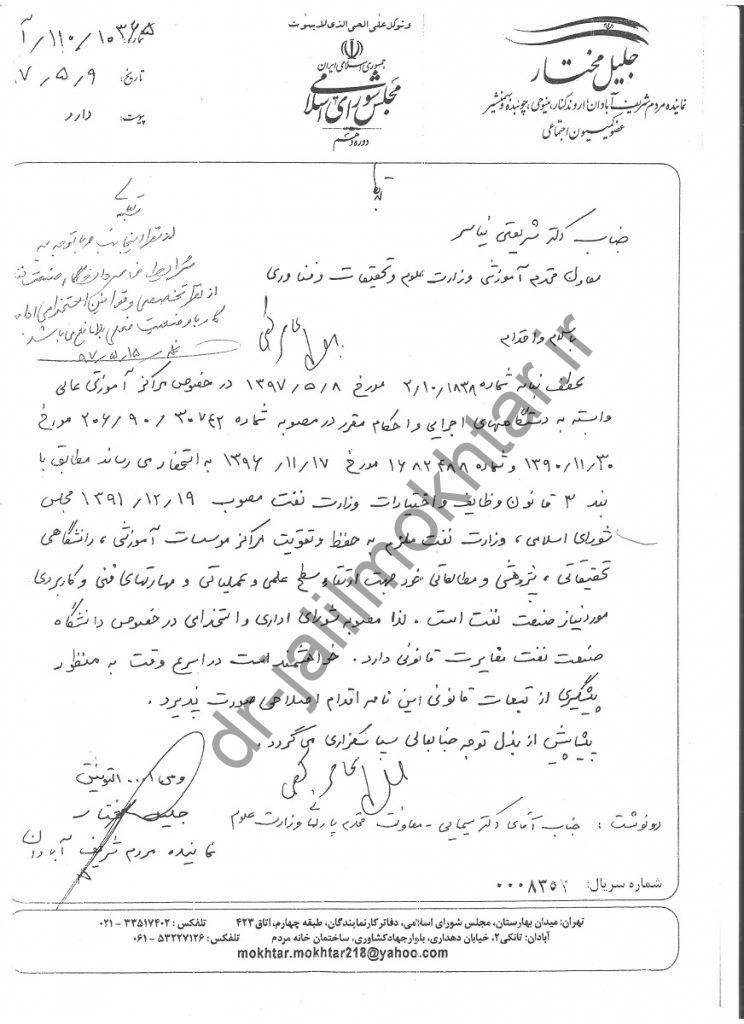 و توکل علی الحی الذی لا یموت
جمهوری اسلامی ایران
مجلس شورای اسلامی
دوره دهم
جلیل مختار
نماینده مردم شریف آبادان، اروندکنار، مینوحی، چوئبده و بهمنشیر
عضو کمیسیون اجتماعی
شماره: ۱۰۳۶۵/۱۱۰/آ
تاریخ: ۷/۵/۹
پیوست: دارد
جناب دکتر شریعتی نیاسر
معاون محترم آموزشی وزارت علوم و تحقیقات و فناوری
باسلام و احترام
بعطف نامه شماره ۲/۱۰/۱۸۳۸ مورخ ۱۳۹۷/۵/۸ در خصوص مراکز آموزش عالی
وابسته به دستگاههای اجرایی و احکام مقرر در مصوبه شماره ۲۰۶/۹۰/۳۰۷۴۲ مورخ
۱۳۹۰/۱۱/۳۰ و شماره ۱۶۸۲۴۸۸ مورخ ۱۳۹۶/۱۱/۱۷ به استحضار می رساند مطابق با
بند ۳ قانون وظایف و اختیارات وزارت نفت مصوب ۱۳۹۱/۱۲/۱۹ مجلس
شورای اسلامی، وزارت نفت ملزم به حفظ و تقویت مراکز موسسات آموزشی، دانشگاهی
تحقیقاتی، پژوهشی و مطالعاتی خود جهت ارتقاء سطح علمی و عملیاتی و مهارتهای فنی و کاربردی
مورد نیاز صنعت نفت است. لذا مصوبه شورای اداری و استخدامی در خصوص دانشگاه
صنعت نفت مغایرت قانونی دارد. خواهشمند است در اسرع وقت به منظور
پیشگیری از تبعات قانونی این نامه اقدام اصلاحی صورت پذیرد.
پیشاپیش از بذل توجه جنابعالی سپاسگزاری می گردد.
ومن ا... التوفیق
جلیل مختار
نماینده مردم شریف آبادان
رونوشت: جناب آقای دکتر سیمایی - معاونت محترم پارلمانی وزارت علوم
شماره سریال: ۰۰۰۸۳۵۲
تهران: میدان بهارستان، مجلس شورای اسلامی، دفاتر کار نمایندگان، طبقه چهارم، اتاق ۴۲۳ تلفکس: ۳۳۵۱۷۴۰۲ - ۰۲۱
آبادان: تانکی۲، خیابان دهداری، بلوار جهاد کشاورزی، ساختمان خانه مردم تلفکس: ۵۳۲۲۷۱۲۶ - ۰۶۱
mokhtar.mokhtar218@yahoo.com
dr-jalilmokhtar.ir